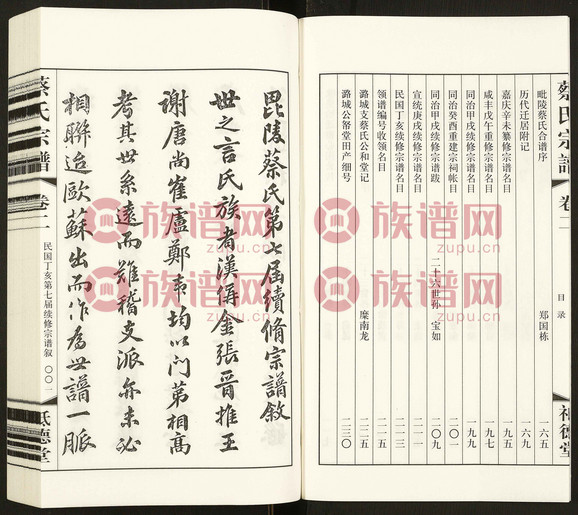 蔡氏宗谱 卷二 目录 祗德堂
毗陵蔡氏合谱序 郑国栋 一六五
历代迁居附记 一六九
嘉庆辛未纂修谱名目 一九五
咸丰戊午重修宗谱名目 一九七
同治甲戌续修宗谱名目 一九九
同治癸酉重建宗祠帐目 二〇一
同治甲戌续修宗谱跋 二十六世孙 宝如 二〇九
宣统庚戌续修宗谱名目 二一一
民国丁亥续修宗谱名目 二一三
领谱编号收领名目 二二一
潞城支蔡氏公和堂记 糜南龙 二二五
潞城公嗧堂田产细号 二三〇
毘陵蔡氏第七届續脩宗譜敘
世之言氏族者漢稱金張晉推王
謝唐尚崔盧鄭韦均以门第相高
考其世系遠而難稽支派亦未必
相聯迨歐蘇出而作為世譜一脈
蔡氏宗譜 卷二 民国丁亥第七届续修宗谱叙 〇〇一 祗德堂
族谱网
zupu.cn